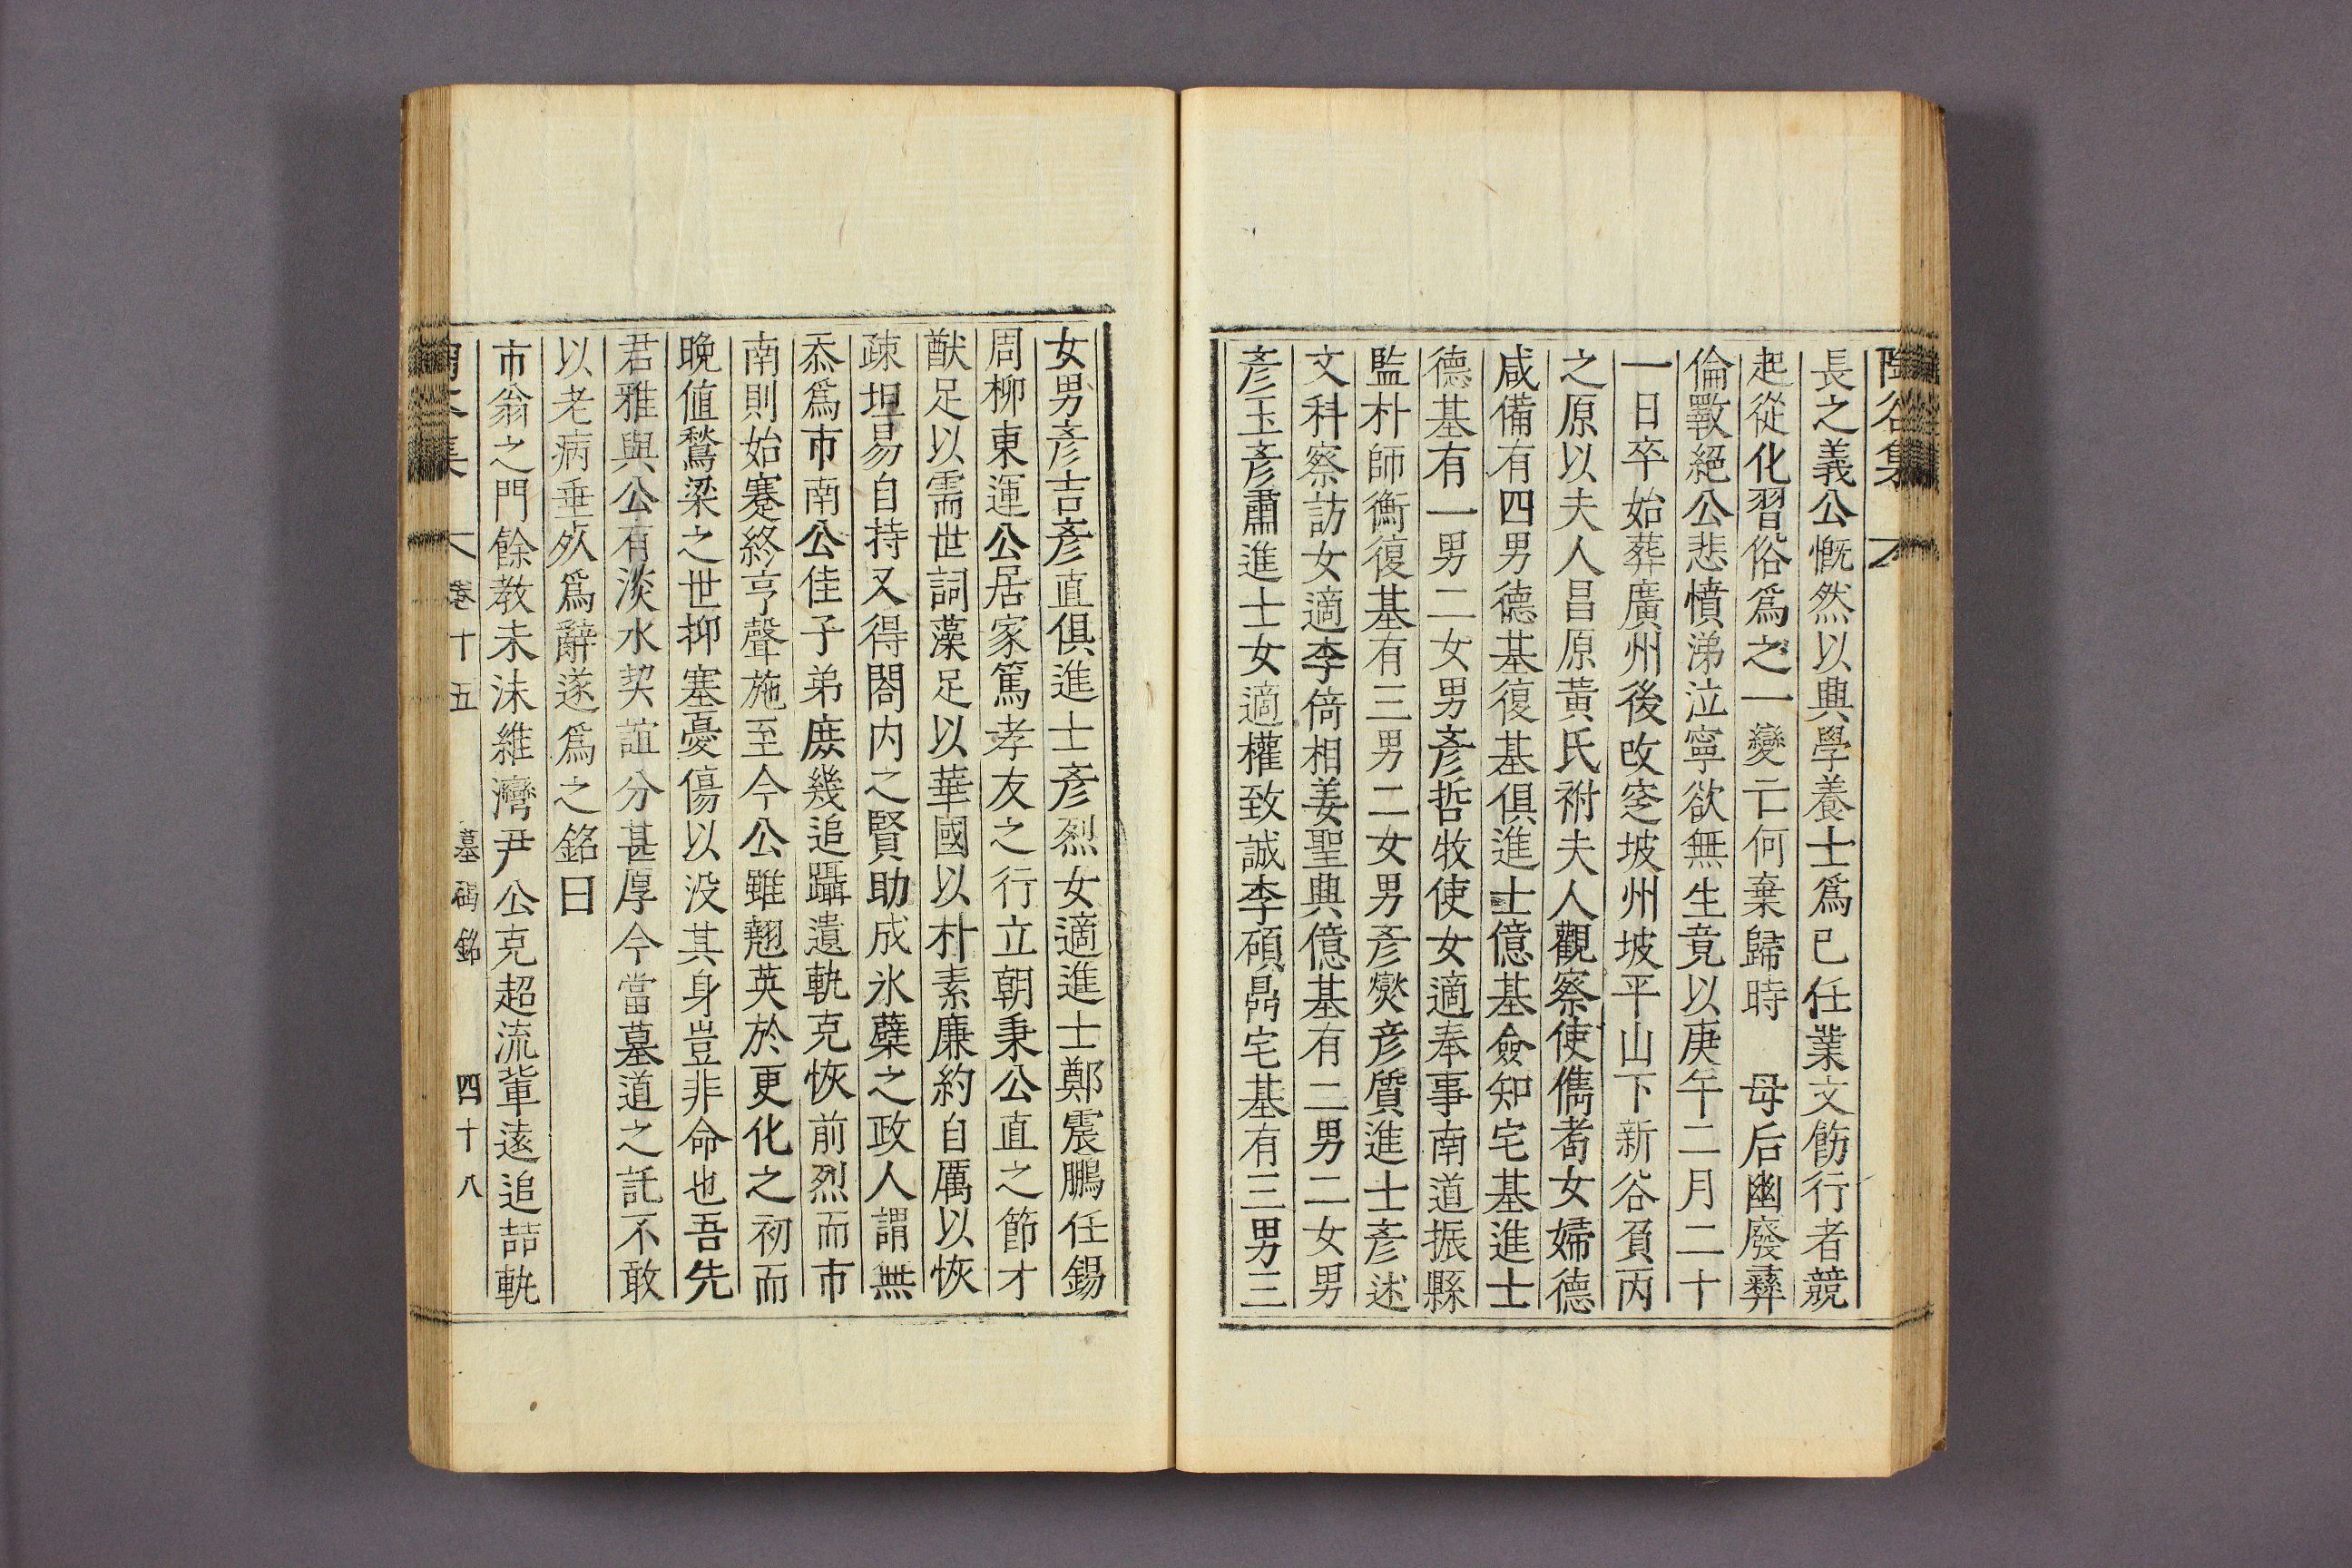 陶谷集
長之義公慨然以興學養士爲已任業文飭行者競
起從化習俗爲之一變云何棄歸時 母后幽廢彛
倫斁絕公悲憤涕泣寧欲無生竟以庚午二月二十
一日卒始葬廣州後改窆坡州坡平山下新谷負丙
之原以夫人昌原黃氏祔夫人觀察使儁耈女婦德
咸備有四男德基復基俱進士億基僉知宅基進士
德基有一男二女男彥哲牧使女適奉事南道振縣
監朴師衡復基有三男二女男彥爕彥質進士彥述
文科察訪女適李倚相姜聖興億基有二男二女男
彥玉彥肅進士女適權致誠李碩鼎宅基有三男三
女男彥吉彥直俱進士彥烈女適進士鄭震鵬任錫
周柳東運公居家篤孝友之行立朝秉公直之節才
猷足以需世詞藻足以華國以朴素廉約自厲以恢
疎坦易自持又得閤內之賢助成氷蘗之政人謂無
忝爲市南公佳子弟庶幾追躡遺軌克恢前烈而市
南則始蹇終亨聲施至今公雖翹英於更化之初而
晚值鶖梁之世抑塞憂傷以沒其身豈非命也吾先
君雅與公有淡水契誼分甚厚今當墓道之託不敢
以老病垂㱥爲辭遂爲之銘曰
市翁之門餘敎未沬維灣尹公克超流輩遠追喆軌
陶谷集 卷十五 墓碣銘 四十八